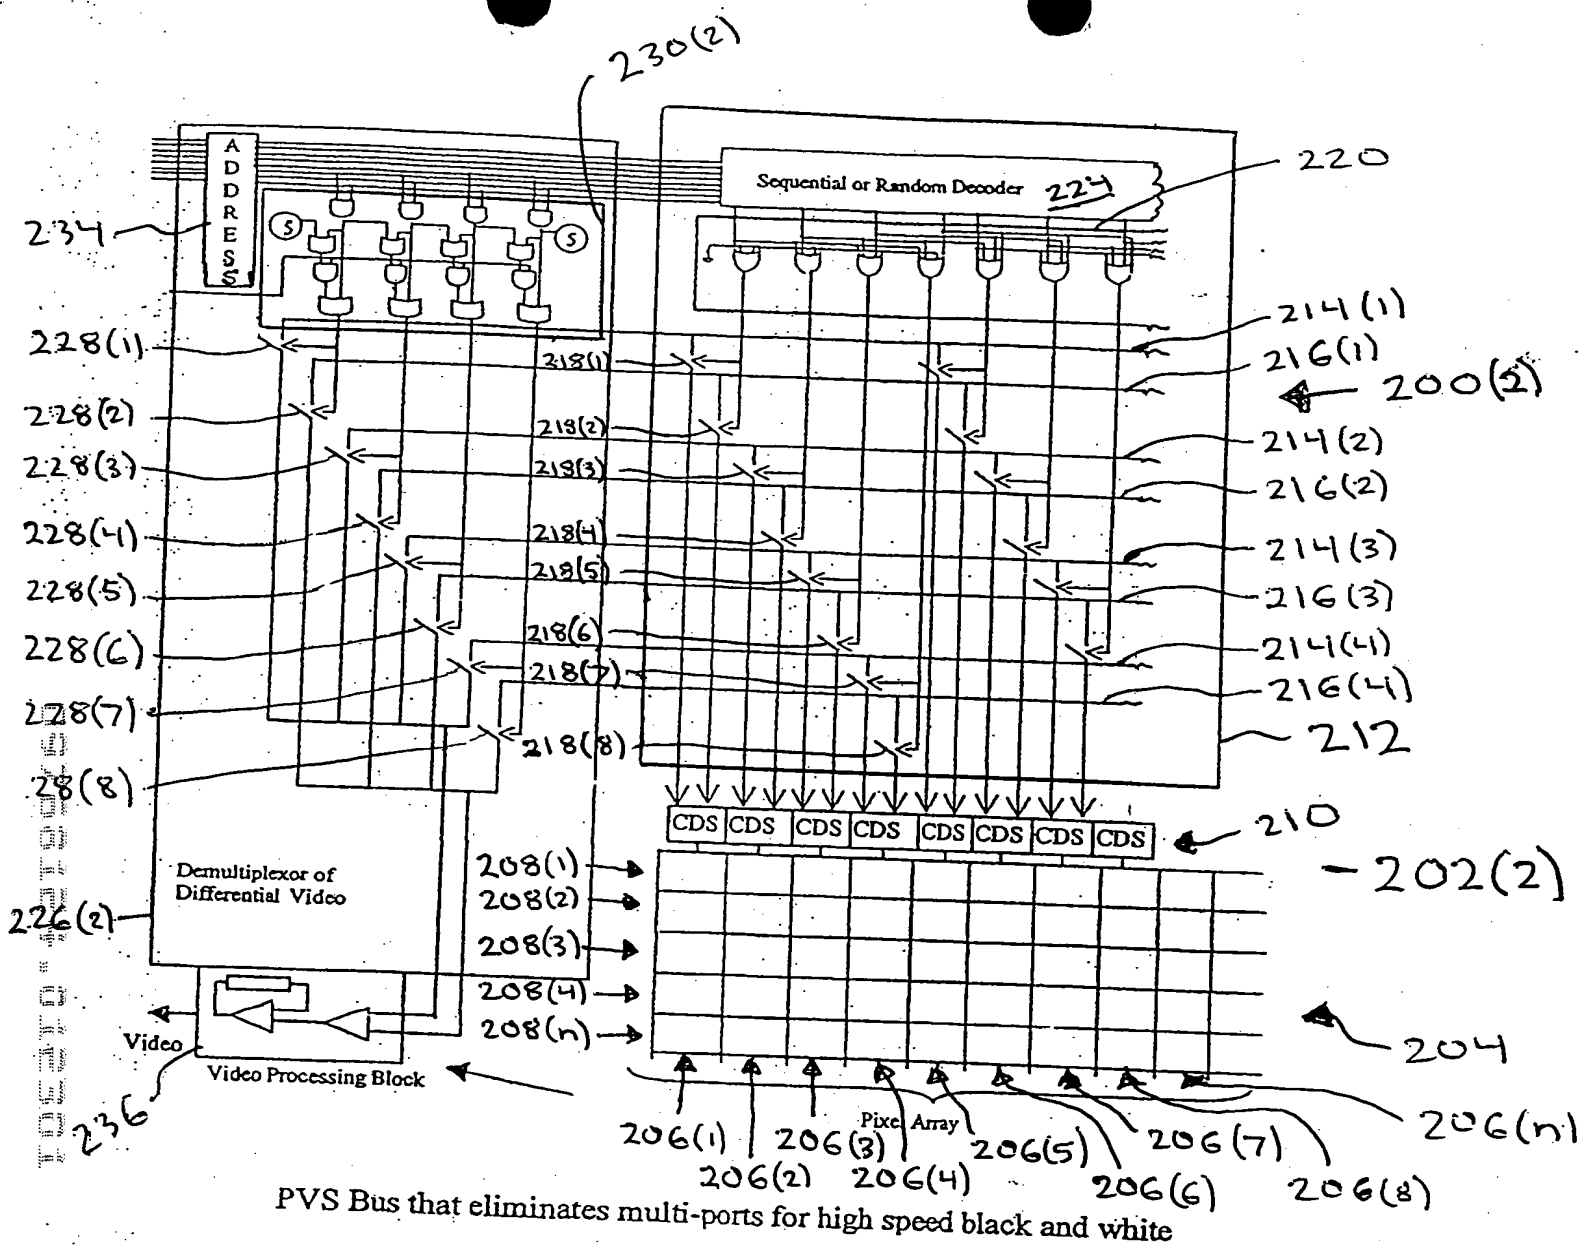 230(2)
ADDRESS
Sequential or Random Decoder 224
220
234
S
S
214(1)
228(1)
218(1)
216(1)
200(2)
228(2)
218(2)
214(2)
228(3)
218(3)
216(2)
228(4)
218(4)
214(3)
228(5)
218(5)
216(3)
228(6)
218(6)
214(4)
218(7)
216(4)
228(7)
218(8)
212
28(8)
CDS CDS CDS CDS CDS CDS CDS CDS
210
208(1)
202(2)
Demultiplexor of
Differential Video
208(2)
226(2)
208(3)
208(4)
208(n)
204
Video
Video Processing Block
236
Pixel Array
206(1)
206(2)
206(3)
206(4)
206(5)
206(6)
206(7)
206(8)
206(n)
PVS Bus that eliminates multi-ports for high speed black and white